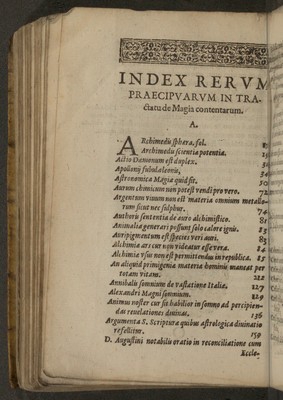 INDEX RERVM
PRAECIPVARVM IN TRA-
ctatu de Magia contentarum.
A.
ARchimedis sphæra, fol.
Archimedis scientia potentia. 15
Actio Dæmonum est duplex.
Apollonij fabula leonis, 34
Astronomica Magia quid sit. 30
Aurum chimicum non potest vendi pro vero. 72
Argentum viuum non est materia omnium metallo-
rum sicut nec sulphur. 74
Authoris sententia de auro alchimistico. 81
Animalia generari possunt solo calore ignis. 83
Auripigmentum est species veri auri. 83
Alchimia ars cur non videatur esse vera. 84
Alchimiæ vsus non est permittendus in republica. 85
An aliquid primigenia materia hominis maneat per
totam vitam. 121
Annibalis somnium de vastatione Italiæ. 127
Alexandri Magni somnium. 129
Animus noster cur sit habilior in somno ad percipien-
das reuelationes diuinas. 136
Argumenta S. Scripturæ quibus astrologica diuinatio
refellitur. 159
D. Augustini notabilis oratio in reconciliatione cum
Eccle-